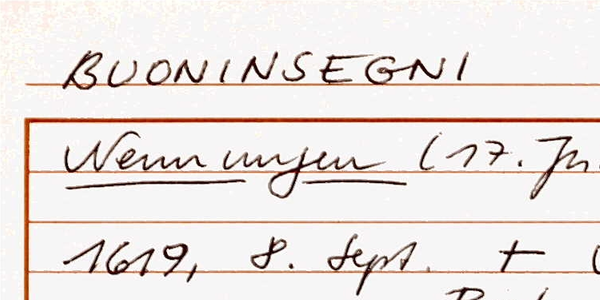 BUONINSEGNI
Nennungen (17. Jh.
1619, 8. Sept. +